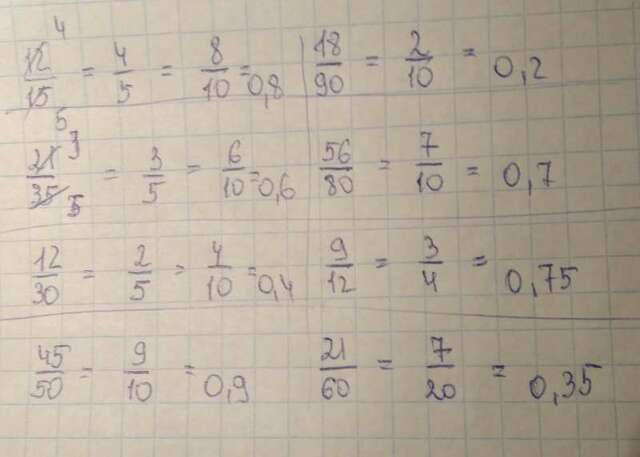 12/15 = 4/5 = 8/10 = 0,8 18/90 = 2/10 = 0,2
4 5
21/35 = 3/5 = 6/10 = 0,6 56/80 = 7/10 = 0,7
3 5
12/30 = 2/5 = 4/10 = 0,4 9/12 = 3/4 = 0,75
45/50 = 9/10 = 0,9 21/60 = 7/20 = 0,35